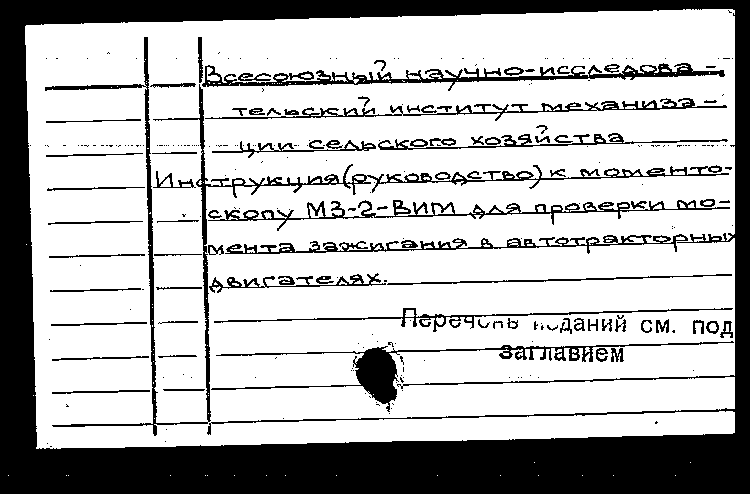 Всесоюзный научно-исследова-
тельский институт механиза-
ции сельского хозяйства
Инструкция (руководство) к моменто-
скопу МЗ-2-ВИМ для проверки мо-
мента зажигания в автотракторных
двигателях.
Перечень изданий см. под
заглавием